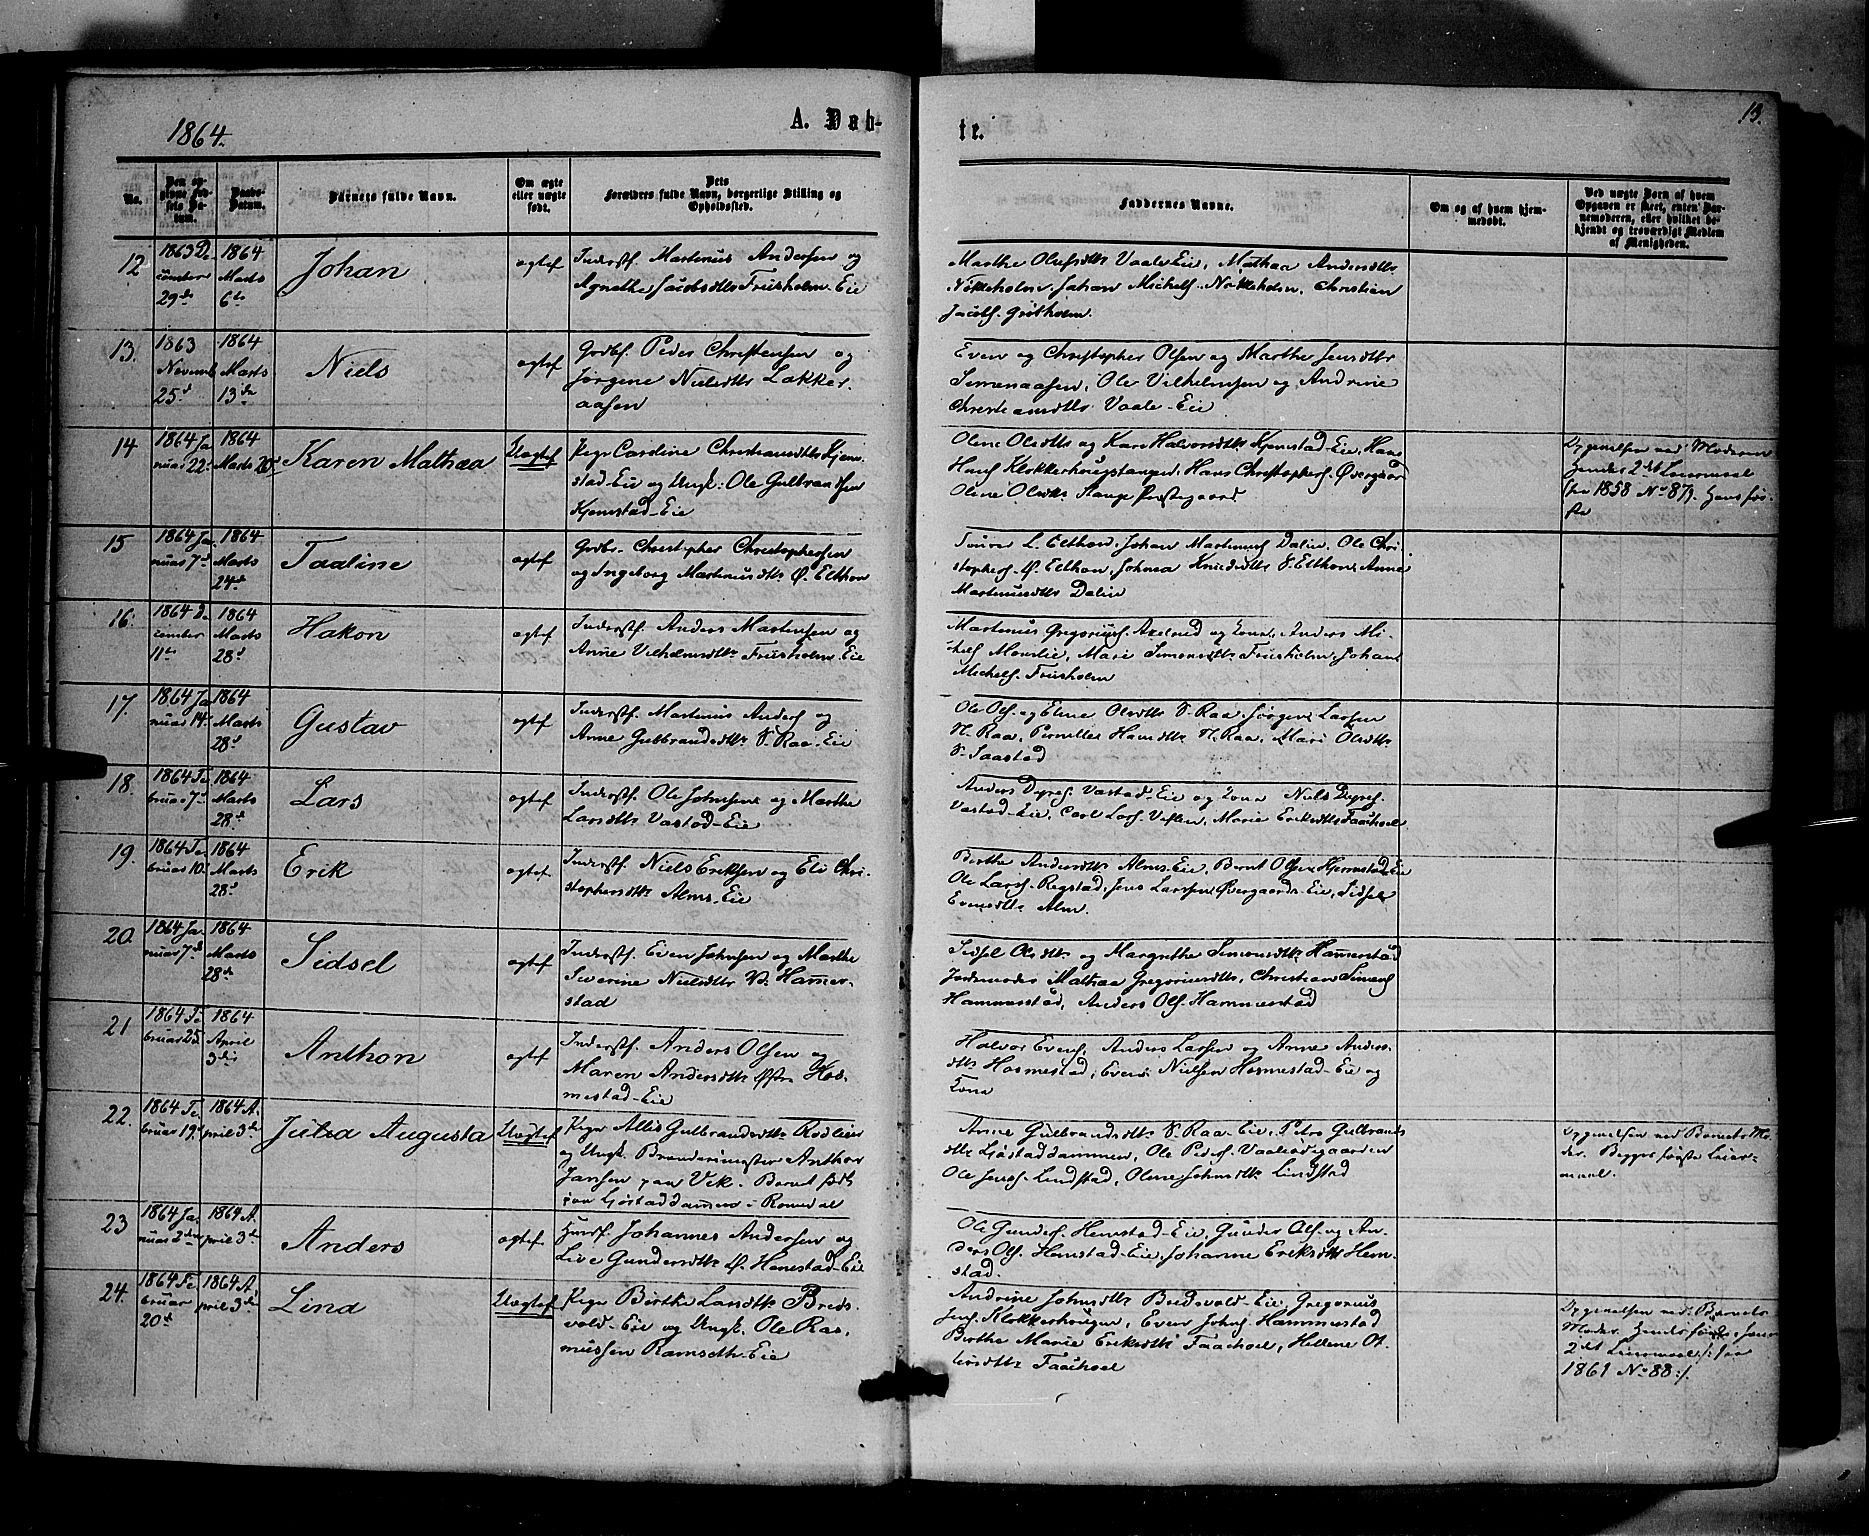 1864.
A. Døb-
te.
13.
No.
Den op-
givne Fød-
sels Da-
tum.
Daabs-
Datum.
Barnets fulde Navn.
Om ægte
eller uægte
født.
Dets
Forældres fulde Navn, borgerlige Stilling og
Opholdssted.
Faddernes Navne.
Om og af hvem hjem-
medøbt.
Ved uægte Børn af hvem
Opgaven er skeet, enten Bar-
nemoderen, eller hvilket be-
kjendt og troværdigt Medlem
af Menigheden.
12
1863 De-
cember
29de
1864
Marts
6te
Johan
ægtef
Inderstf. Martinus Andersen og
Agnethe Jacobsdttr Friisholm-Eie
Marthe Olufsdttr Vaale-Eie, Mathea Andersdttr
Nökleholm, Johan Michels. Nökleholm, Christian
Jacobs. Grötholm.
13.
1863
Novemb
25d
1864
Marts
13de
Niels
ægtef
Grdbf. Peder Christensen og
Jørgine Nielsdttr Lökker-
aasen
Even og Christopher Olsen og Marthe Jensdttr
Simenaasen, Ole Vilhelmsen og Andrine
Christiansdttr Vaale-Eie
14
1864 Ja-
nuar 22.
1864
Marts 20d
Karen Mathæa
Uægtef
Pige Caroline Christiansdttr Kjem-
stad-Eie og Ungk. Ole Gulbrandsen
Kjemstad-Eie
Oline Olsdttr og Kari Halvorsdttr Kjemstad-Eie, Hans
Hans. Klokkerhougstangen, Hans Christophers. Övergaar
Oline Olsdttr Stange Præstegaard
Opgivelsen ved Moderen
Hendes 2det Leiermaal
(fra 1858 No 87). Hans før-
ste
15
1864 Ja-
nuar 7d
1864
Marts
24d
Taaline
ægtef
Grdbr. Christopher Christophersen
og Ingeborg Martinusdttr Ø. Elthon
L. Elthon, Johan Martinus. Dalin, Ole Chri-
stophers. Ø. Elthon, Johnea Knudsdttr Elthon, Anne
Martinusdttr Dalin
16.
1864 De-
cember
11te
1864
Marts
28d
Hakon
ægtef
Inderstf. Anders Martinsen og
Anne Vilhelmsdttr Friisholm-Eie
Martinus Gregorius. Axelrud og Kone, Anders Mi-
chels. Monslie, Mari Simonsdttr Friisholm, Johan
Michels. Friisholm
17.
1864 Ja-
nuar 14.
1864
Marts
28d
Gustav
ægtef
Inderstf. Martinus Anders. og
Anne Gulbrandsdttr S. Raa-Eie
Ole Ols. og Eline Olsdttr S. Raa, Jørgen Larsen
N. Raa, Pernille Hansdttr N. Raa, Mari Olsdttr
S. Saastad
18.
1864 Fe-
bruar 7d
1864
Marts
28d
Lars
ægtef
Inderstf. Ole Johnsen og Marthe
Larsdttr Vastad-Eie
Anders Dyres. Vastad-Eie og Kone, Niels Dyres.
Vastad-Eie, Carl Lars. Veflen, Marie Eriksdttr Faachoel
19.
1864 Fe-
bruar 10.
1864
Marts
28d
Erik
ægtef
Inderstf. Niels Eriksen og Eli Chri-
stophersdttr Alms-Eie
Berthe Andersdttr Alms-Eie, Bernt Olsen Hjemstad-Eie
Ole Lars. Rogstad, Jens Larssen Övergaards-Eie, Sidsel
Evensdttr Alm.
20.
1864 Ja-
nuar 7d
1864
Marts
28de
Sidsel
ægtef
Inderstf. Even Johnsen og Marthe
Severine Nielsdttr V. Hamer-
stad
Sidsel Olsdttr og Margrethe Simonsdttr Hammerstad
Jordemoder Mathea Gregoriusdttr, Christian Simens.
Hammerstad, Anders Ols. Hammerstad
21
1864 Fe-
bruar 25.
1864
April
3die
Anthon
ægtef
Inderstf. Anders Olsen og
Maren Andersdttr Østre Hos-
mestad-Eie
Halvor Evens., Anders Larsen og Anne Anders-
dttr Hosmestad, Even Nielsen Hosmestad-Eie og
Kone
22.
1864 Fe-
bruar 19.
1864 A-
pril 3de
Julia Augusta
Uægtef
Pige Allis Gulbrandsdttr Rødlien
og Ungk. Brænderimester Anthon
Jansen paa Vik. Barnet født
paa Ljøstaddammen i Romedal
Anne Gulbrandsdttr S. Raa-Eie, Petra Gulbrands
dttr Ljøstaddammen, Ole Peders. Vaalerudgaarden
Ole Jens. Lindstad, Oline Johnsdttr Lindstad
Opgivelsen ved Barnets Mo-
der. Begges første Leier-
maal.
23
1864 Ja-
nuar 2den
1864 A-
pril 3d
Anders
ægtef
Huusf. Johannes Andersen og
Live Gundersdttr Ø. Hemstad-Eie
Ole Gunders. Hemstad-Eie, Gunder Ols. og An-
ders Ols. Hemstad-Eie, Johanne Eriksdttr Hem-
stad.
24.
1864 Fe-
bruar
20d
1864 A-
pril 3de
Lina
Uægtef
Pige Birthe Larsdttr Breds-
vold-Eie og Ungk. Ole Ras-
mussen Ramseth-Eie
Andrine Johnsdttr Bredsvold-Eie, Gregorius
Jens. Klokkerhougen, Even Johns. Hammerstad
Birthe Marie Eriksdttr Faachoel, Hellene Ot-
tersdttr Faachoel
Opgivelsen ved Barnets
Moder. Hendes første, hans
2det Leiermaal /: fra
1861 No 88 :/.